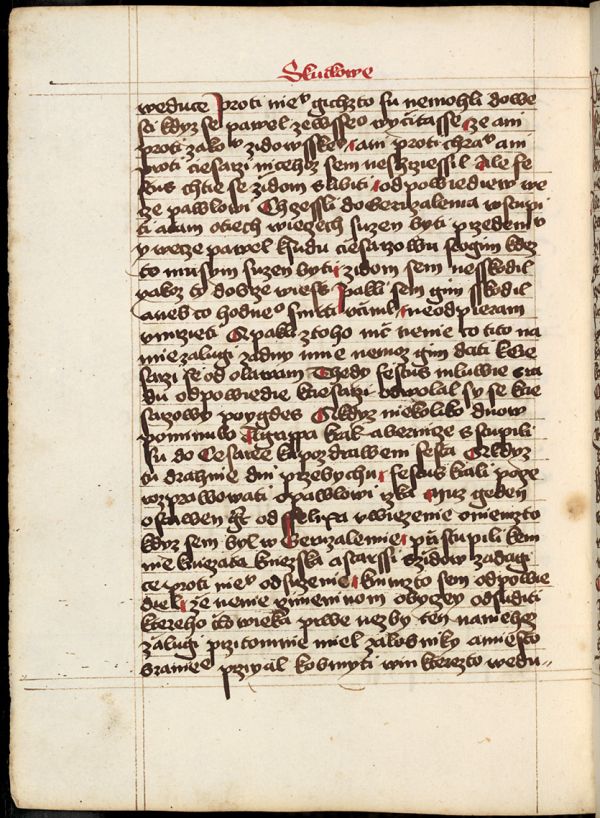 Skutkowe
weduce proti nieᵘ gichzto su nemohli dowe
sci kdyz se pawel zewsseᵒ wyčitasse ze ani
proti zakoᵘ zidowsskeᵘ ani proti chraᵘ ani
proti ciesarzi niczehoz sem neshrziessil Ale fe
stus chtie se zidom slibiti odpowiediew we
ze pawlowi Chzessli do Geruzalema wstupi
ti a tam o tiech wiezech suzen byti przedemᵘ
y wecze pawel k sudu ciesarzowu stogim kdez
to musym suzen byti zidom sem nesskodil
yakoz ty dobrze wiess Pakli sem gim sskodil
aneb co hodneᵒ smrti včinil neodpieram
vmrzieti A pakli z toho nic nenie co tito na
mie zalugi zadny mne nemoz gim dati k Cie
sarzi se odolawam Thedy festus mluwie s ra
du odpowiedie k ciesarzi odwolal sy se k cie
sarzowy poygdes A kdyz niekoliko dnow
pominulo Agrippa kral a bernice sstupili
su do Cesaree ku pozdrawem festa A kdyz
tu drahnie dni przebychu festus krali poče
rozprawowati o pawlowi rzka muz geden
ostawen gt od Felixa v wiezenie o niemzto
kdyz sem byl w Geruzalemie přistupili kem
nie kniezata kniezska a starssi zidow zadagi
ce proti nieᵘ odsuzenie k nimzto sem odpowie
diel ze nenie rzimeninom obyczey odsuditi
ktereho človieka prwe nezby ten na niehoz
zalugi przitomnie miel zalobniky a miesto
braniti przyal k obmyti win kterezto wedu